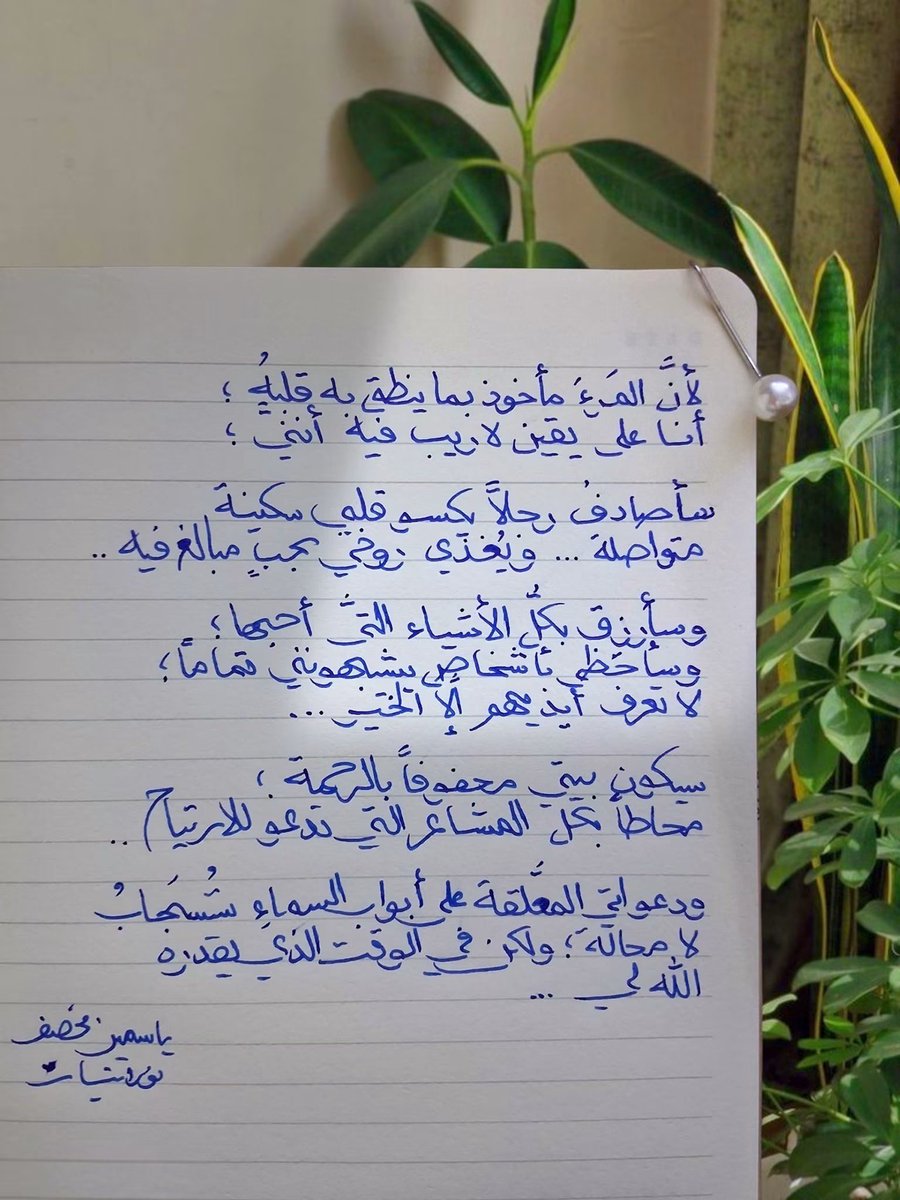 لأنَّ المَرءَ مأخوذ بما ينطق به قلبهُ ؛
أنا على يقين لا ريب فيه أنني ؛
سأصادفُ رجلاً يكسو قلبي سكينة
متواصلة ... ويُغذّي روحي بحبٍ مبالغ فيه ..
وسأرزق بكلُّ الأشياء التيَّ أحبها ؛
وسأحظى بأشخاصٍ يشبهونني تماماً ؛
لا تعرف أيديهم إلا الخير ...
سيكون بيتي محفوفاً بالرحمة ؛
محاطاً بكل المشاعر التي تدعو للارتياح ..
ودعواتي المعلَّقة على أبواب السماءِ ستُستَجابُ
لا محالة ؛ ولكن في الوقت الذي يقدره
الله لي ...
ياسمين